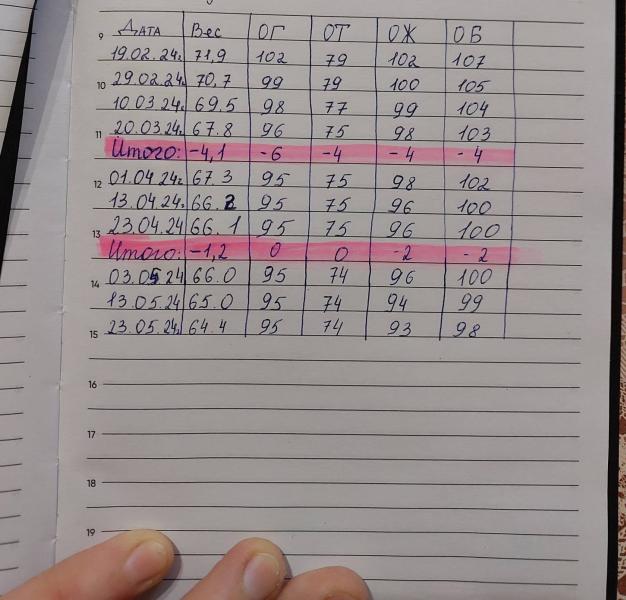 9 Дата Вес ОГ ОТ ОЖ ОБ
19.02.24г. 71,9 102 79 102 107
10 29.02.24г. 70,7 99 79 100 105
10.03.24г. 69.5 98 77 99 104
11 20.03.24г. 67.8 96 75 98 103
Итого: -4,1 -6 -4 -4 -4
12 01.04.24г. 67.3 95 75 98 102
13.04.24г. 66.2 95 75 96 100
13 23.04.24 66.1 95 75 96 100
Итого: -1,2 0 0 -2 -2
14 03.05.24 66.0 95 74 96 100
13.05.24 65.0 95 74 94 99
15 23.05.24г. 64.4 95 74 93 98
16
17
18
19